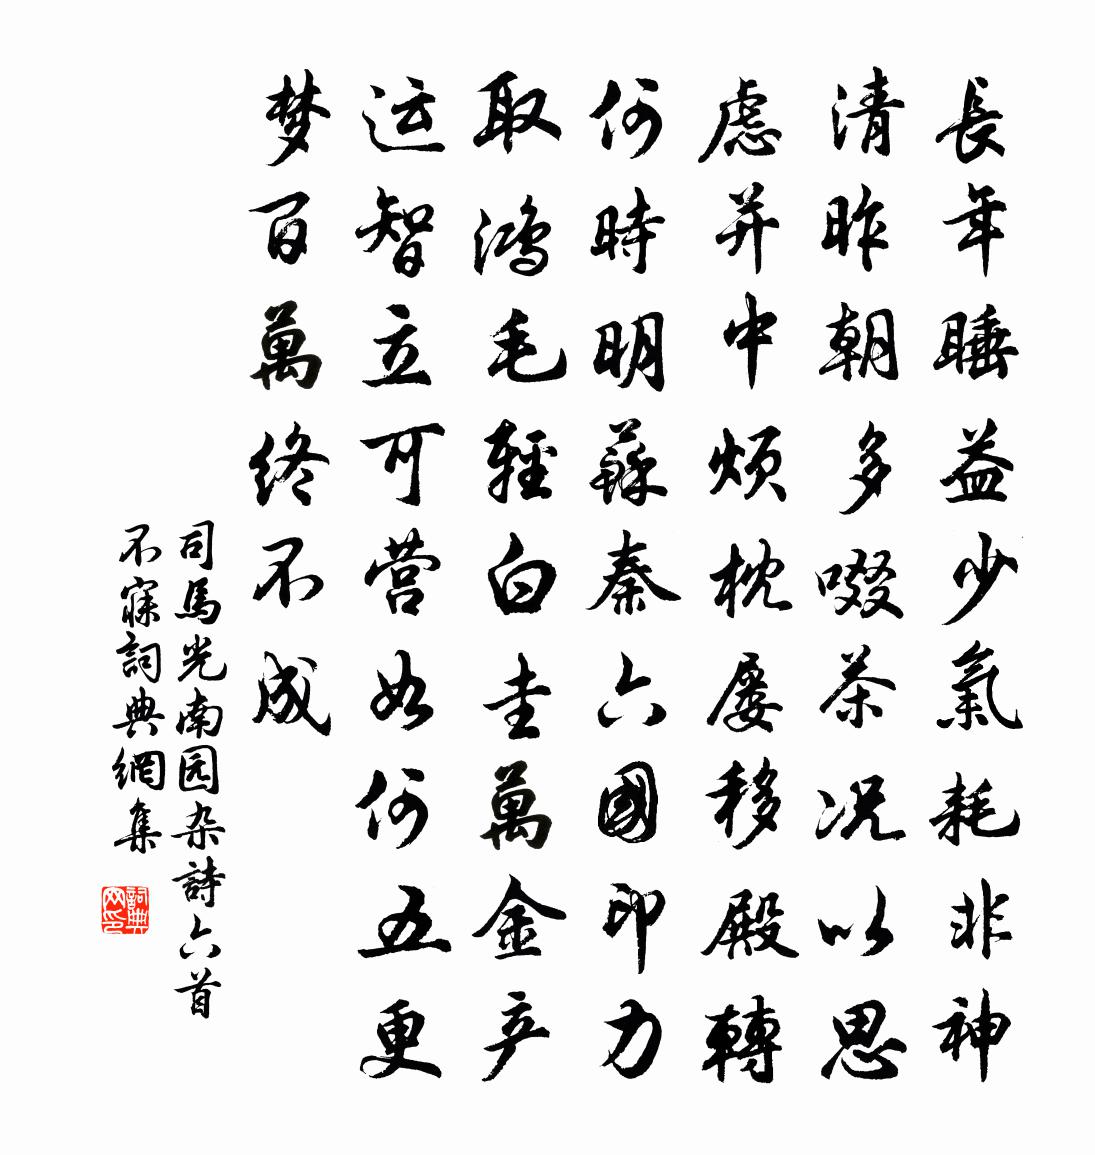 長年睡益少氣耗非神
清昨朝多啜茶况以思
慮并中煩枕屡移殿轉
何時明蘇秦六國印力
取鴻毛輕白圭萬金产
运智立可营如何五更
梦百萬终不成
司馬光南园杂詩六首
不寐詞典網集
詞典
网印